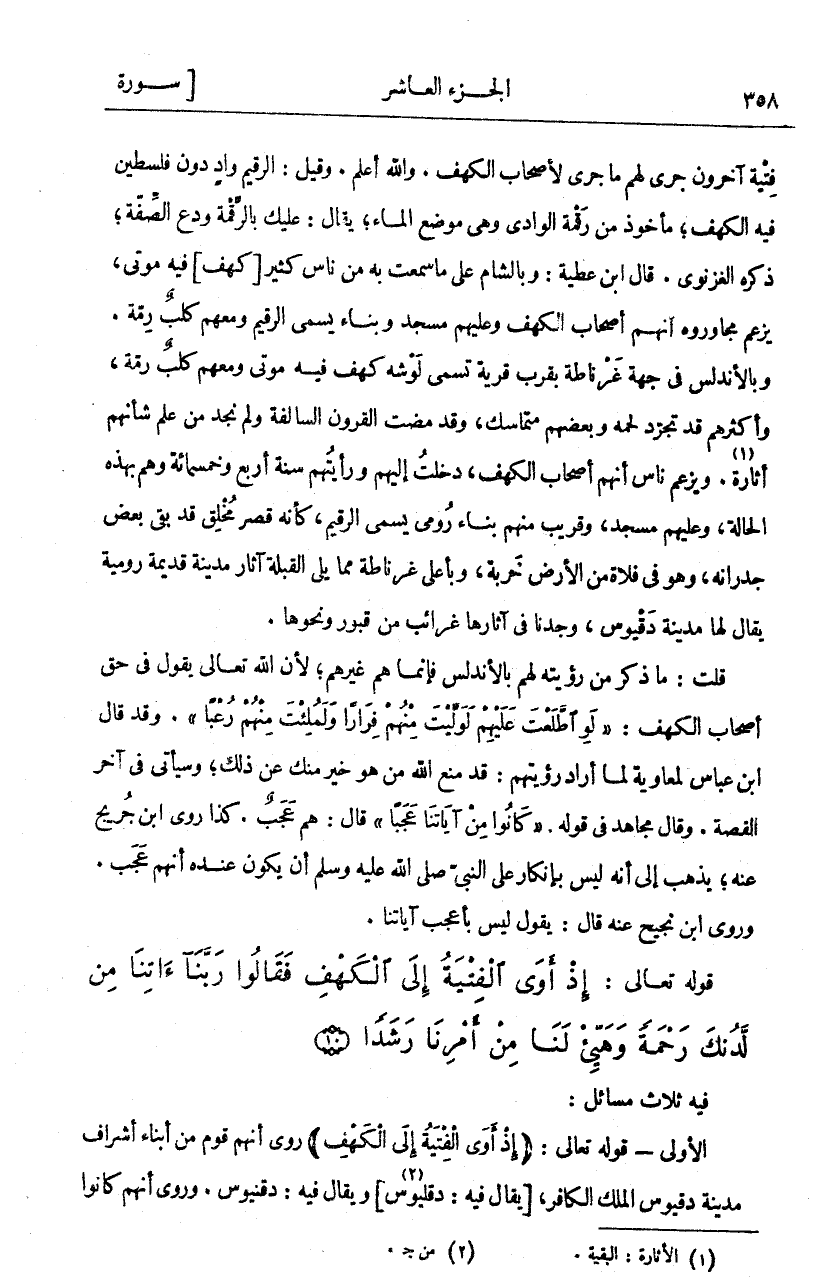 ٣٥٨ الجزء العاشر [ سورة
فِتْية آخرون جرى لهم ما جرى لأصحاب الكهف . والله أعلم . وقيل : الرقيم وادٍ دون فلسطين
فيه الكهف ؛ مأخوذ من رَقْمة الوادى وهى موضع الماء ؛ يقال : عليك بالرَّقْمة ودع الضِّفّة ؛
ذكره الغزنوى . قال ابن عطية : وبالشام على ما سمعت به من ناس كثير [كهف] فيه موتى ،
يزعم مجاوروه أنهم أصحاب الكهف وعليهم مسجد وبناء يسمى الرقيم ومعهم كلبٌ رِمّة .
وبالأندلس فى جهة غَرْناطة بقرب قرية تسمى لَوْشه كهف فيه موتى ومعهم كلبٌ رمّة ،
وأكثرهم قد تجرّد لحمه وبعضهم متماسك ، وقد مضت القرون السالفة ولم نجد من علم شأنهم
أثارة (١) . ويزعم ناس أنهم أصحاب الكهف ، دخلتُ إليهم ورأيتُهم سنة أربع وخمسمائة وهم بهذه
الحالة ، وعليهم مسجد ، وقريب منهم بناء رُومى يسمى الرقيم ، كأنه قصر مُخْلِق قد بقى بعض
جدرانه ، وهو فى فلاة من الأرض خَرِبة ، وبأعلى غرناطة مما يلى القبلة آثار مدينة قديمة رومية
يقال لها مدينة دَقْيوس ، وجدنا فى آثارها غرائب من قبور ونحوها .
قلت : ما ذكر من رؤيته لهم بالأندلس فإنما هم غيرهم ؛ لأن الله تعالى يقول فى حق
أصحاب الكهف : « لَوِ ٱطَّلَعْتَ عَلَيْهِمْ لَوَلَّيْتَ مِنْهُمْ فِرَارًا وَلَمُلِئْتَ مِنْهُمْ رُعْبًا » . وقد قال
ابن عباس لمعاوية لما أراد رؤيتهم : قد منع الله من هو خير منك عن ذلك ؛ وسيأتى فى آخر
القصة . وقال مجاهد فى قوله . « كَانُوا مِنْ آيَاتِنَا عَجَبًا » قال : هم عَجَبٌ . كذا روى ابن جُريج
عنه ؛ يذهب إلى أنه ليس بإنكار على النبىّ صلى الله عليه وسلم أن يكون عنده أنهم عَجَب .
وروى ابن نجيح عنه قال : يقول ليس بأعجب آياتنا .
قوله تعالى : إِذْ أَوَى ٱلْفِتْيَةُ إِلَى ٱلْكَهْفِ فَقَالُوا رَبَّنَآ ءَاتِنَا مِن
لَّدُنكَ رَحْمَةً وَهَيِّئْ لَنَا مِنْ أَمْرِنَا رَشَدًا ﴿١٠﴾
فيه ثلاث مسائل :
الأولى — قوله تعالى : ﴿إِذْ أَوَى الْفِتْيَةُ إِلَى الْكَهْفِ﴾ روى أنهم قوم من أبناء أشراف
مدينة دقيوس الملك الكافر ، [يقال فيه : دقليوس] (٢) ويقال فيه : دقنيوس . وروى أنهم كانوا
(١) الأثارة : البقية . (٢) من جـ .